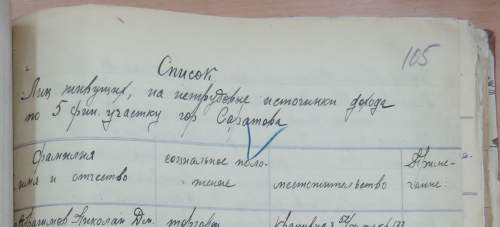 105
Список
Лиц живущих, на нетрудовые источники дохода
по 5 фин. участку гор Саратова
Фамилия социальное поло- Приме-
имя и отчество жение местожительство чание
Николай торговец